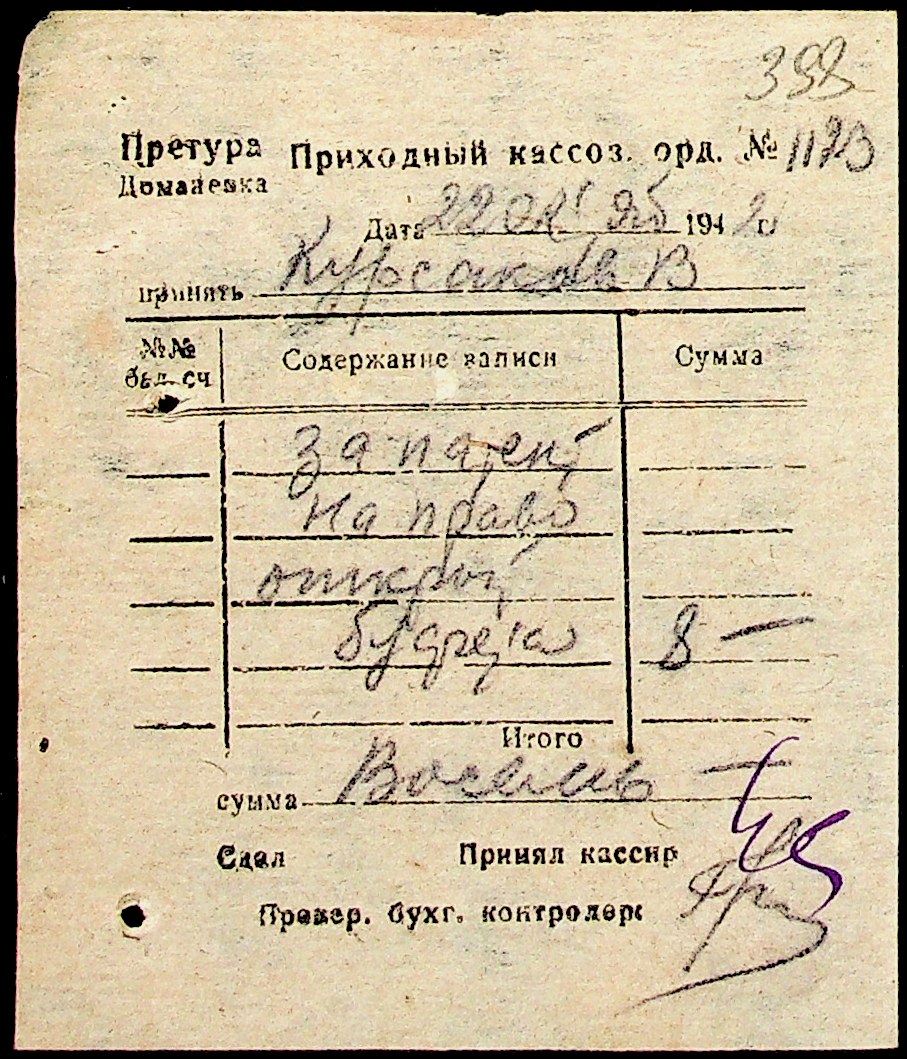 398
Претура Приходный кассов. орд. № 1123
Доманевка
Дата 22 194 2 г.
принять Курсаков В
№№ бал. сч Содержание записи Сумма
за патент
на право
открыт
8 —
Итого
сумма Восемь —
Сдал Принял кассир
Провер. бухг. контролер